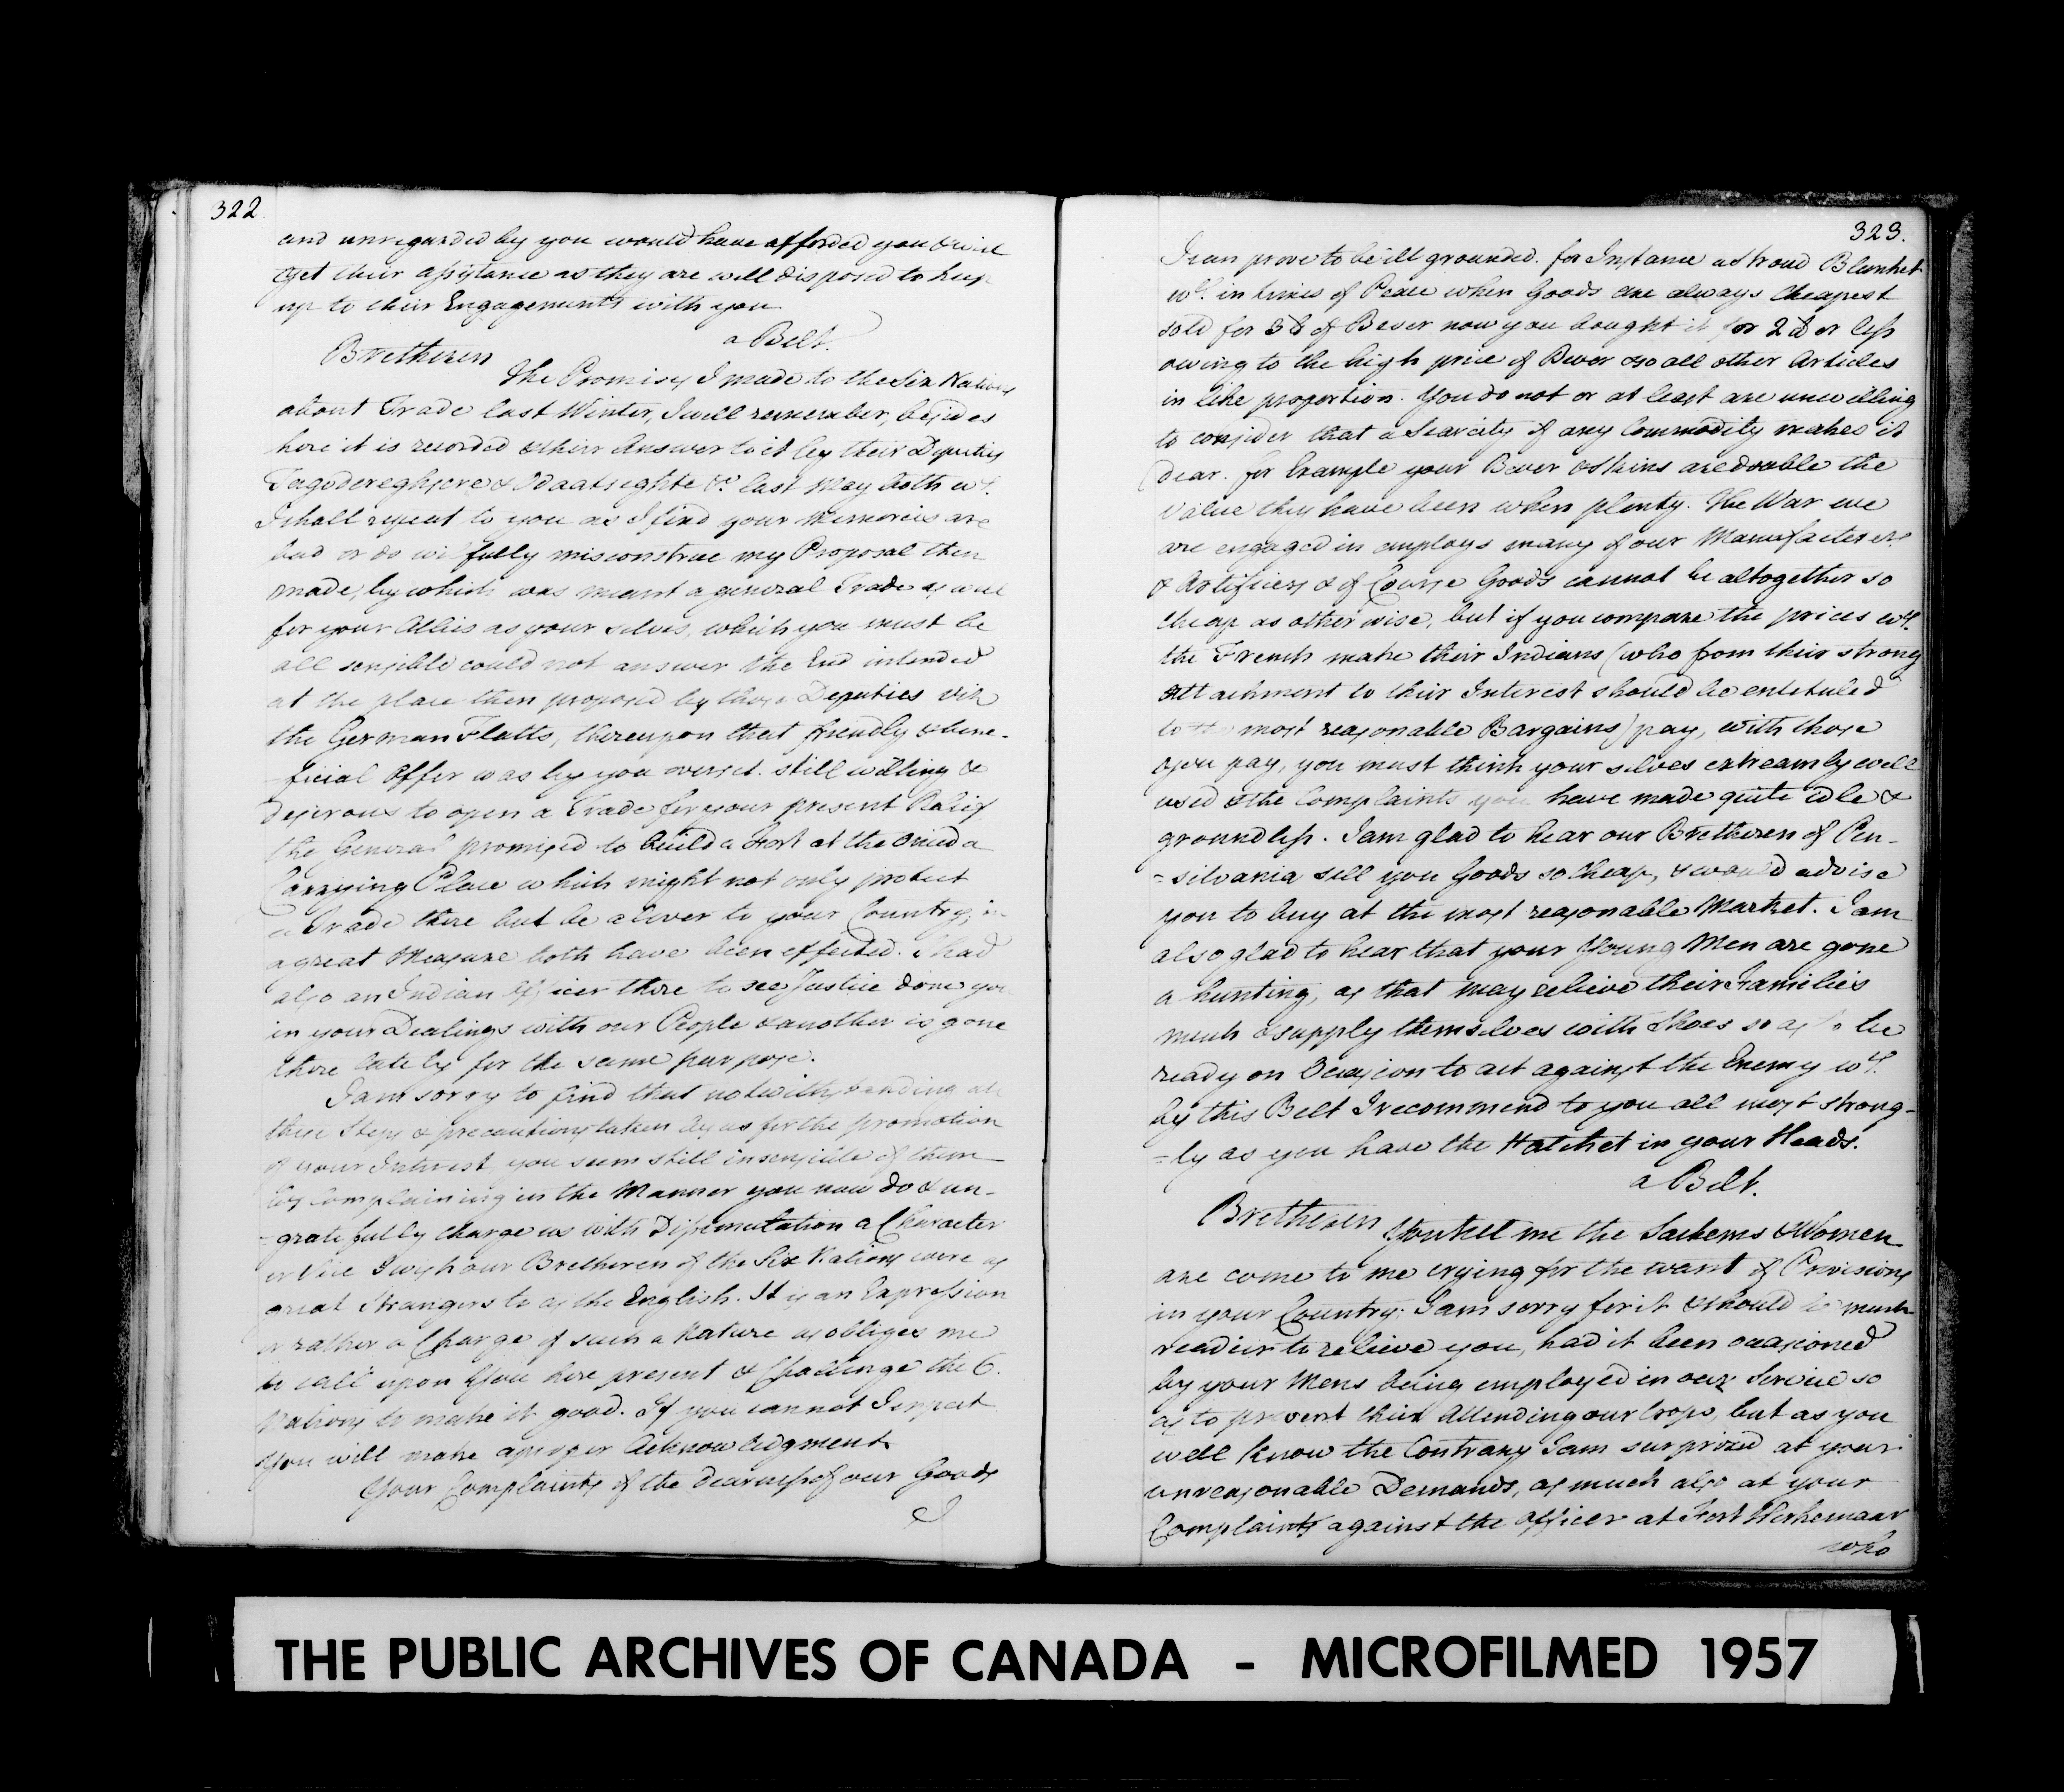 322
and unregarded by you would have afforded you & will
yet their assistance as they are well disposed to keep
up to their Engagements with you
a Belt.
Bretheren
the Promises I made to the Six Nations
about Trade last Winter, I well remember, besides
here it is recorded & their Answer to it by their Deputies
Tagodereghsere & Odaatseghte &c. last May both wh.
I shall repeat to you as I find your Memories are
bad or do wilfully misconstrue my Proposal then
made, by which was meant a general Trade as well
for your Allies as your selves, which you must be
all sensible could not answer the End intended
at the place then proposed by those Deputies viz
the German Flatts, thereupon that friendly & bene-
ficial Offer was by you overset. still willing &
desirous to open a Trade for your present Relief
the General promised to build a Fort at the Oneida
Carrying Place which might not only protect
a Trade there but be a Cover to your Country, in
a great Measure both have been effected. I had
also an Indian Officer there to see Justice done you
in your Dealings with our People & another is gone
there lately for the same purpose.
I am sorry to find that notwithstanding all
these Steps & precautions taken by us for the promotion
of your Interest, you seem still insensible of them
by complaining in the Manner you now do & un-
=gratefully charge us with Dissimulation a Character
or Vice I wish our Bretheren of the Six Nations were as
great Strangers to as the English. It is an Expression
or rather a Charge of such a Nature as obliges me
to call upon You here present & Challenge the 6.
Nations to make it good. If you cannot I expect
you will make a proper Acknowledgment
Your Complaints of the dearness of our Goods
I
323.
I can prove to be ill grounded. for Instance a Stroud Blanket
wh. in times of Peace when Goods are always Cheapest
sold for 3 lb of Bever now you bought it for 2 lb or less
owing to the high price of Bever & so all other Articles
in like proportion. You do not or at least are unwilling
to consider that a Scarcity of any Commodity makes it
dear. for Example your Bever & Skins are double the
Value they have been when plenty. The War we
are engaged in employs many of our Manufacturers
& Artificers & of Course Goods cannot be altogether so
cheap as otherwise, but if you compare the prices wh.
the French make their Indians (who from their strong
attachment to their Interest should be entituled
to the most reasonable Bargains) pay, with those
you pay, you must think your selves extreamly well
used & the Complaints you have made quite idle &
groundless. I am glad to hear our Bretheren of Pen-
=silvania sell you Goods so Cheap, & would advise
you to buy at the most reasonable Market. I am
also glad to hear that your Young Men are gone
a hunting, as that may relieve their Families
much & supply themselves with Shoes so as to be
ready on Occasion to act against the Enemy wh.
by this Belt I recommend to you all most strong-
=ly as you have the Hatchet in your Heads.
a Belt.
Bretheren
You tell me the Sachems & Women
are come to me crying for the want of Provisions
in your Country. I am sorry for it & should be much
readier to relieve you, had it been occasioned
by your Mens being employed in our Service so
as to prevent their Attending our Crops, but as you
well know the Contrary I am surprized at your
unreasonable Demands, as much also at your
Complaints against the officer at Fort Herkemaar
who
THE PUBLIC ARCHIVES OF CANADA - MICROFILMED 1957